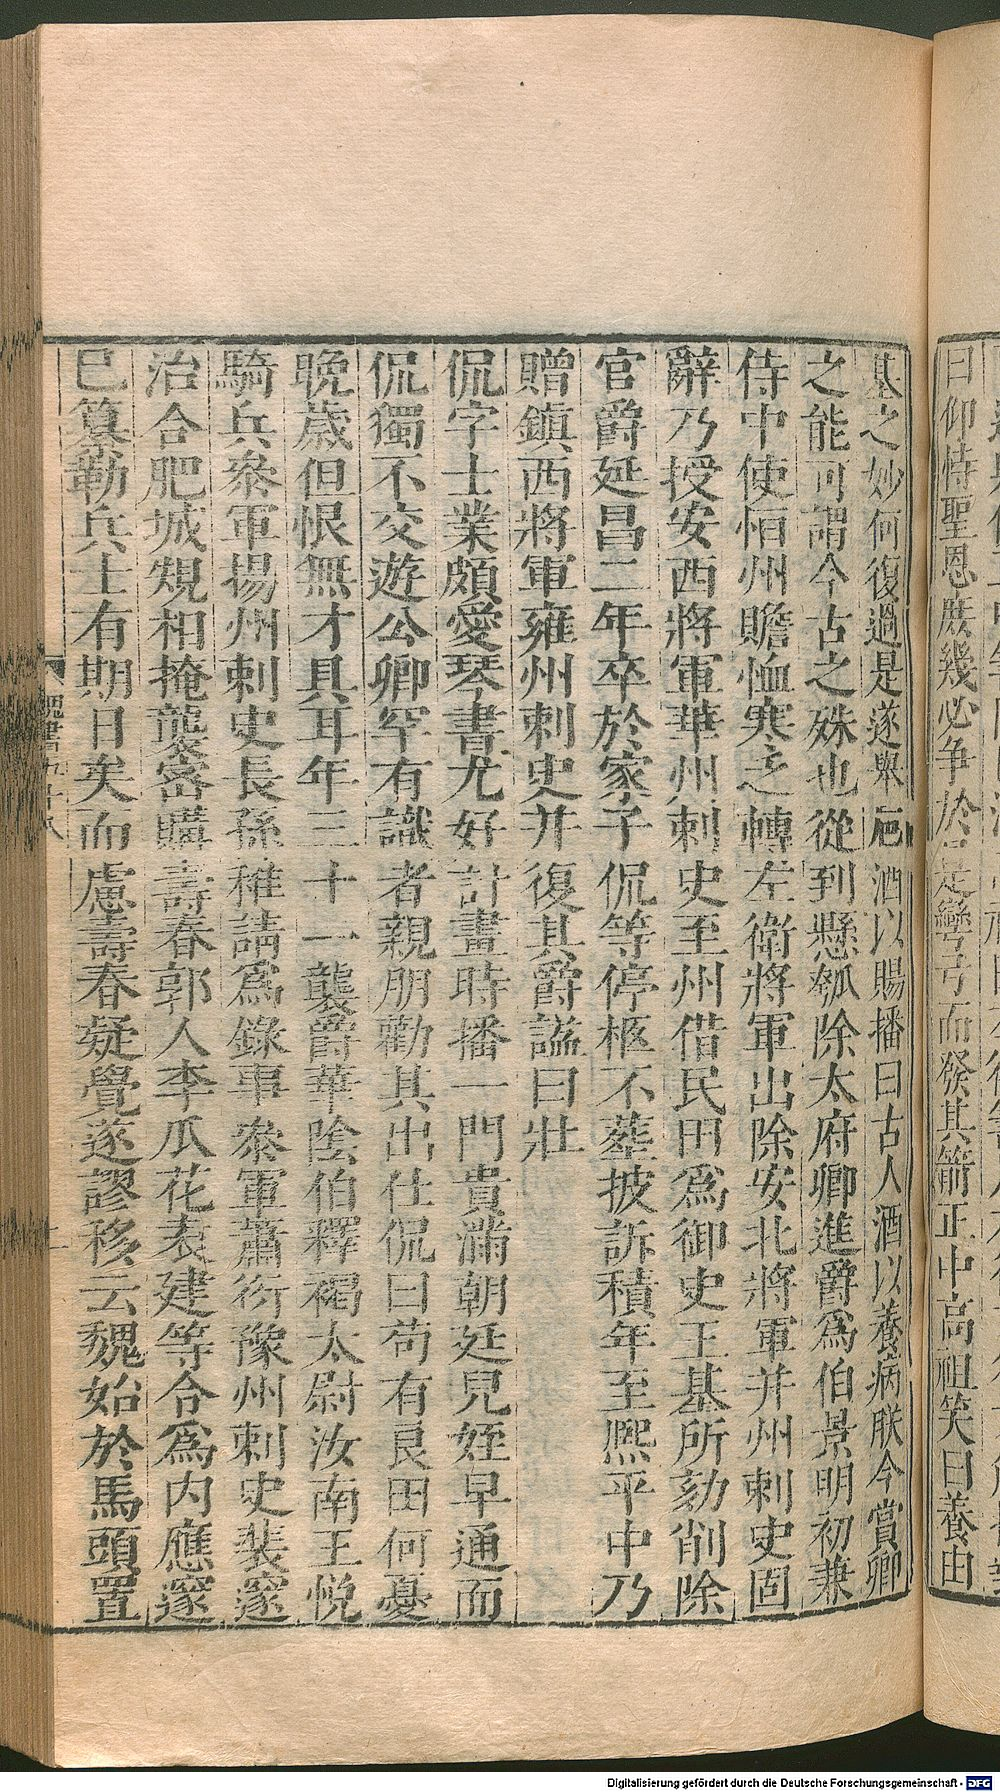 曰仰恃聖恩庶幾必争於是彎弓而發其箭正中高祖笑曰養由
基之妙何復過是遂舉巵酒以賜播曰古人酒以養病朕今賞卿
之能可謂今古之殊也從到懸瓠除太府卿進爵爲伯景明初兼
侍中使恒州贍恤寒乏轉左衛將軍出除安北將軍并州刺史固
辭乃授安西將軍華州刺史至州借民田爲御史王基所劾削除
官爵延昌二年卒於家子侃等停柩不葬披訴積年至熙平中乃
贈鎮西將軍雍州刺史并復其爵謚曰壯
侃字士業頗愛琴書尤好計畫時播一門貴滿朝廷兒姪早通而
侃獨不交遊公卿罕有識者親朋勸其出仕侃曰苟有良田何憂
晚歲但恨無才具耳年三十一襲爵華陰伯釋褐太尉汝南王悅
騎兵參軍揚州刺史長孫稚請爲錄事參軍蕭衍豫州刺史裴邃
治合肥城規相掩襲密購壽春郭人李瓜花袁建等令爲内應邃
巳纂勒兵士有期日矣而慮壽春疑覺遂謬移云魏始於馬頭置
魏書九十八
Digitalisierung gefördert durch die Deutsche Forschungsgemeinschaft - DFG